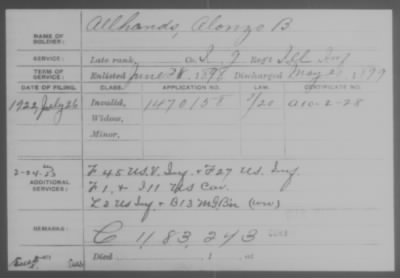 NAME OF SOLDIER: Allhands, Alonzo B
SERVICE: Late rank, Co. I, 9 Regt Ill Inf
TERM OF SERVICE: Enlisted June 28, 1898 Discharged May 20, 1899
DATE OF FILING. CLASS. APPLICATION NO. LAW. CERTIFICATE NO.
1922 July 26 Invalid, 1470158
Widow,
Minor,
ADDITIONAL SERVICES: F 45 U.S.V. Inf. & F 27 U.S. Inf.
F 1, & I 11 US Cav.
L 2 US Inf & B 13 M G Bn (WW)
REMARKS: C 1,183,243
Died , 1 , at